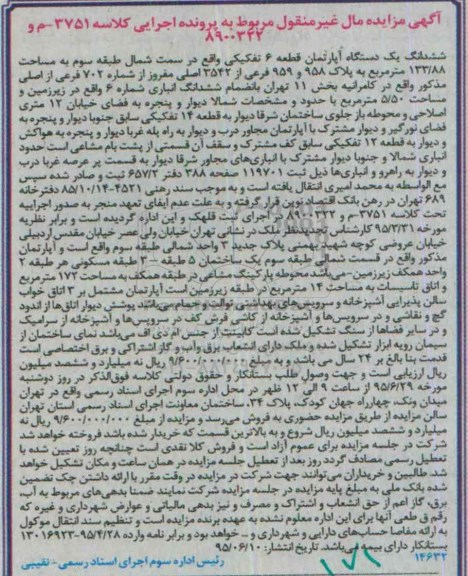 آگهی مزایده مال غیرمنقول مربوط به پرونده اجرایی کلاسه ۳۷۵۱-م و
۸۹۰۰۳۲۲
ششدانگ یک دستگاه آپارتمان قطعه ۶ تفکیکی واقع در سمت شمال طبقه سوم به مساحت
۱۳۳/۸۸ مترمربع به پلاک ۹۵۸ و ۹۵۹ فرعی از ۳۵۴۲ اصلی مفروز از شماره ۷۰۲ فرعی از اصلی
مذکور واقع در کامرانیه بخش ۱۱ تهران بانضمام ششدانگ انباری شماره ۶ واقع در زیرزمین و
مساحت ۵/۵۰ مترمربع با حدود و مشخصات شمالا دیوار و پنجره به فضای خیابان ۱۲ متری
اصلاحی و محوطه باز جلوی ساختمان شرقا دیوار به قطعه ۱۴ تفکیکی سابق جنوبا دیوار و پنجره به
فضای نورگیر و دیوار مشترک با آپارتمان مجاور درب و دیوار به راه پله غربا دیوار و پنجره به هواکش
و دیوار به قطعه ۱۲ تفکیکی سابق کف مشترک و سقف آن قسمتی از پشت بام مشاعی است حدود
انباری شمالا و جنوبا دیوار مشترک با انباری‌های مجاور شرقا دیوار به قسمت پر عرصه غربا درب
و دیوار به راهرو و انباری‌ها ذیل ثبت ۱۱۹۷۰۱ صفحه ۳۸۸ دفتر ۶۵۷/۲ ثبت و صادر شده سپس
مع الواسطه به محمد امیری انتقال یافته است و به موجب سند رهنی ۴۵۲۱-۸۵/۱۰/۱۴ دفترخانه
۶۸۹ تهران در رهن بانک اقتصاد نوین قرار گرفته و به علت عدم ایفای تعهد منجر به صدور اجراییه
تحت کلاسه ۳۷۵۱-م و ۸۹۰۰۳۲۲ در اجرای ثبت قلهک و این اداره گردیده است و برابر نظریه
مورخه ۹۵/۳/۳۱ کارشناس تجدیدنظر ملک در نشانی تهران خیابان ولی عصر خیابان مقدس اردبیلی
خیابان عروضی کوچه شهید بهمنی پلاک جدید ۳ واحد شمالی طبقه سوم واقع است و آپارتمان
مذکور واقع در قسمت شمالی طبقه سوم یک ساختمان ۵ طبقه – ۳ طبقه مسکونی هر طبقه ۲
واحد همکف زیرزمین- می‌باشد محوطه پارکینگ مشاعی در طبقه همکف به مساحت ۱۷۷ مترمربع
و اتاق تاسیسات به مساحت ۱۴ مترمربع در طبقه زیرزمین است آپارتمان مشتمل بر ۳ اتاق خواب
سالن پذیرایی آشپزخانه و سرویس‌های بهداشتی توالت و حمام می‌باشد پوشش دیوار اتاق‌ها از اندود
گچ و نقاشی و در سرویس‌ها و آشپزخانه از کاشی فرش کف در سرویس‌ها و آشپزخانه از سرامیک
و در سایر فضاها از سنگ تشکیل شده است کابینت از جنس ام دی اف می‌باشد نمای ساختمان از
سیمان رویه ابزار تشکیل شده و ملک دارای انشعاب برق و آب و گاز اشتراکی و برق اختصاصی است
قدمت بنا بالغ بر ۲۴ سال می باشد و به مبلغ ۹/۶۰۰/۰۰۰/۰۰۰ ریال نه میلیارد و ششصد میلیون
ریال ارزیابی است و جهت وصول طلب بستانکار و حقوق دولتی کلاسه فوق‌الذکر در روز دوشنبه
مورخه ۹۵/۶/۲۹ از ساعت ۹ الی ۱۲ ظهر در محل اداره سوم اجرای اسناد رسمی واقع در تهران
میدان ونک، چهارراه جهان کودک، پلاک ۳۴، ساختمان معاونت اجرای اسناد رسمی استان تهران
سالن مزایده از طریق مزایده حضوری به فروش می‌رسد و مزایده از مبلغ ۹/۶۰۰/۰۰۰/۰۰۰ ریال نه
میلیارد و ششصد میلیون ریال شروع و به بالاترین قسمت که خریدار شده باشد فروخته خواهد شد
شرکت در جلسه مزایده برای عموم آزاد است و فروش کلا نقدی است چنانچه روز تعیین شده با
تعطیل رسمی مصادف گردد روز بعد از تعطیل جلسه مزایده در همان ساعت و مکان تشکیل خواهد
شد. طالبین و خریداران می‌توانند جهت شرکت در مزایده در وقت مقرر با ارائه داشتن چک تضمین
شده بانک ملی به مبلغ پایه مزایده در جلسه مزایده شرکت نمایند ضمنا بدهی‌های مربوط به آب،
برق، گاز اعم از حق انشعاب و اشتراک و مصرف و نیز بدهی مالیاتی و عوارض شهرداری و غیره که
رقم ق طعی آنها برای این اداره معلوم نشده به عهده برنده مزایده است و تنظیم سند انتقال موکول
به ارائه مفاصا حساب‌های دارایی و شهرداری و .. خواهد بود و برابر نامه وارده ۹۵/۴/۲۸-۱۳۰۱۶۹۲۳
بستانکار دارای بیمه می‌باشد. تاریخ انتشار: ۹۵/۰۶/۱۰
۱۴۶۳۲ رئیس اداره سوم اجرای اسناد رسمی- نقیبی
۱۷۱